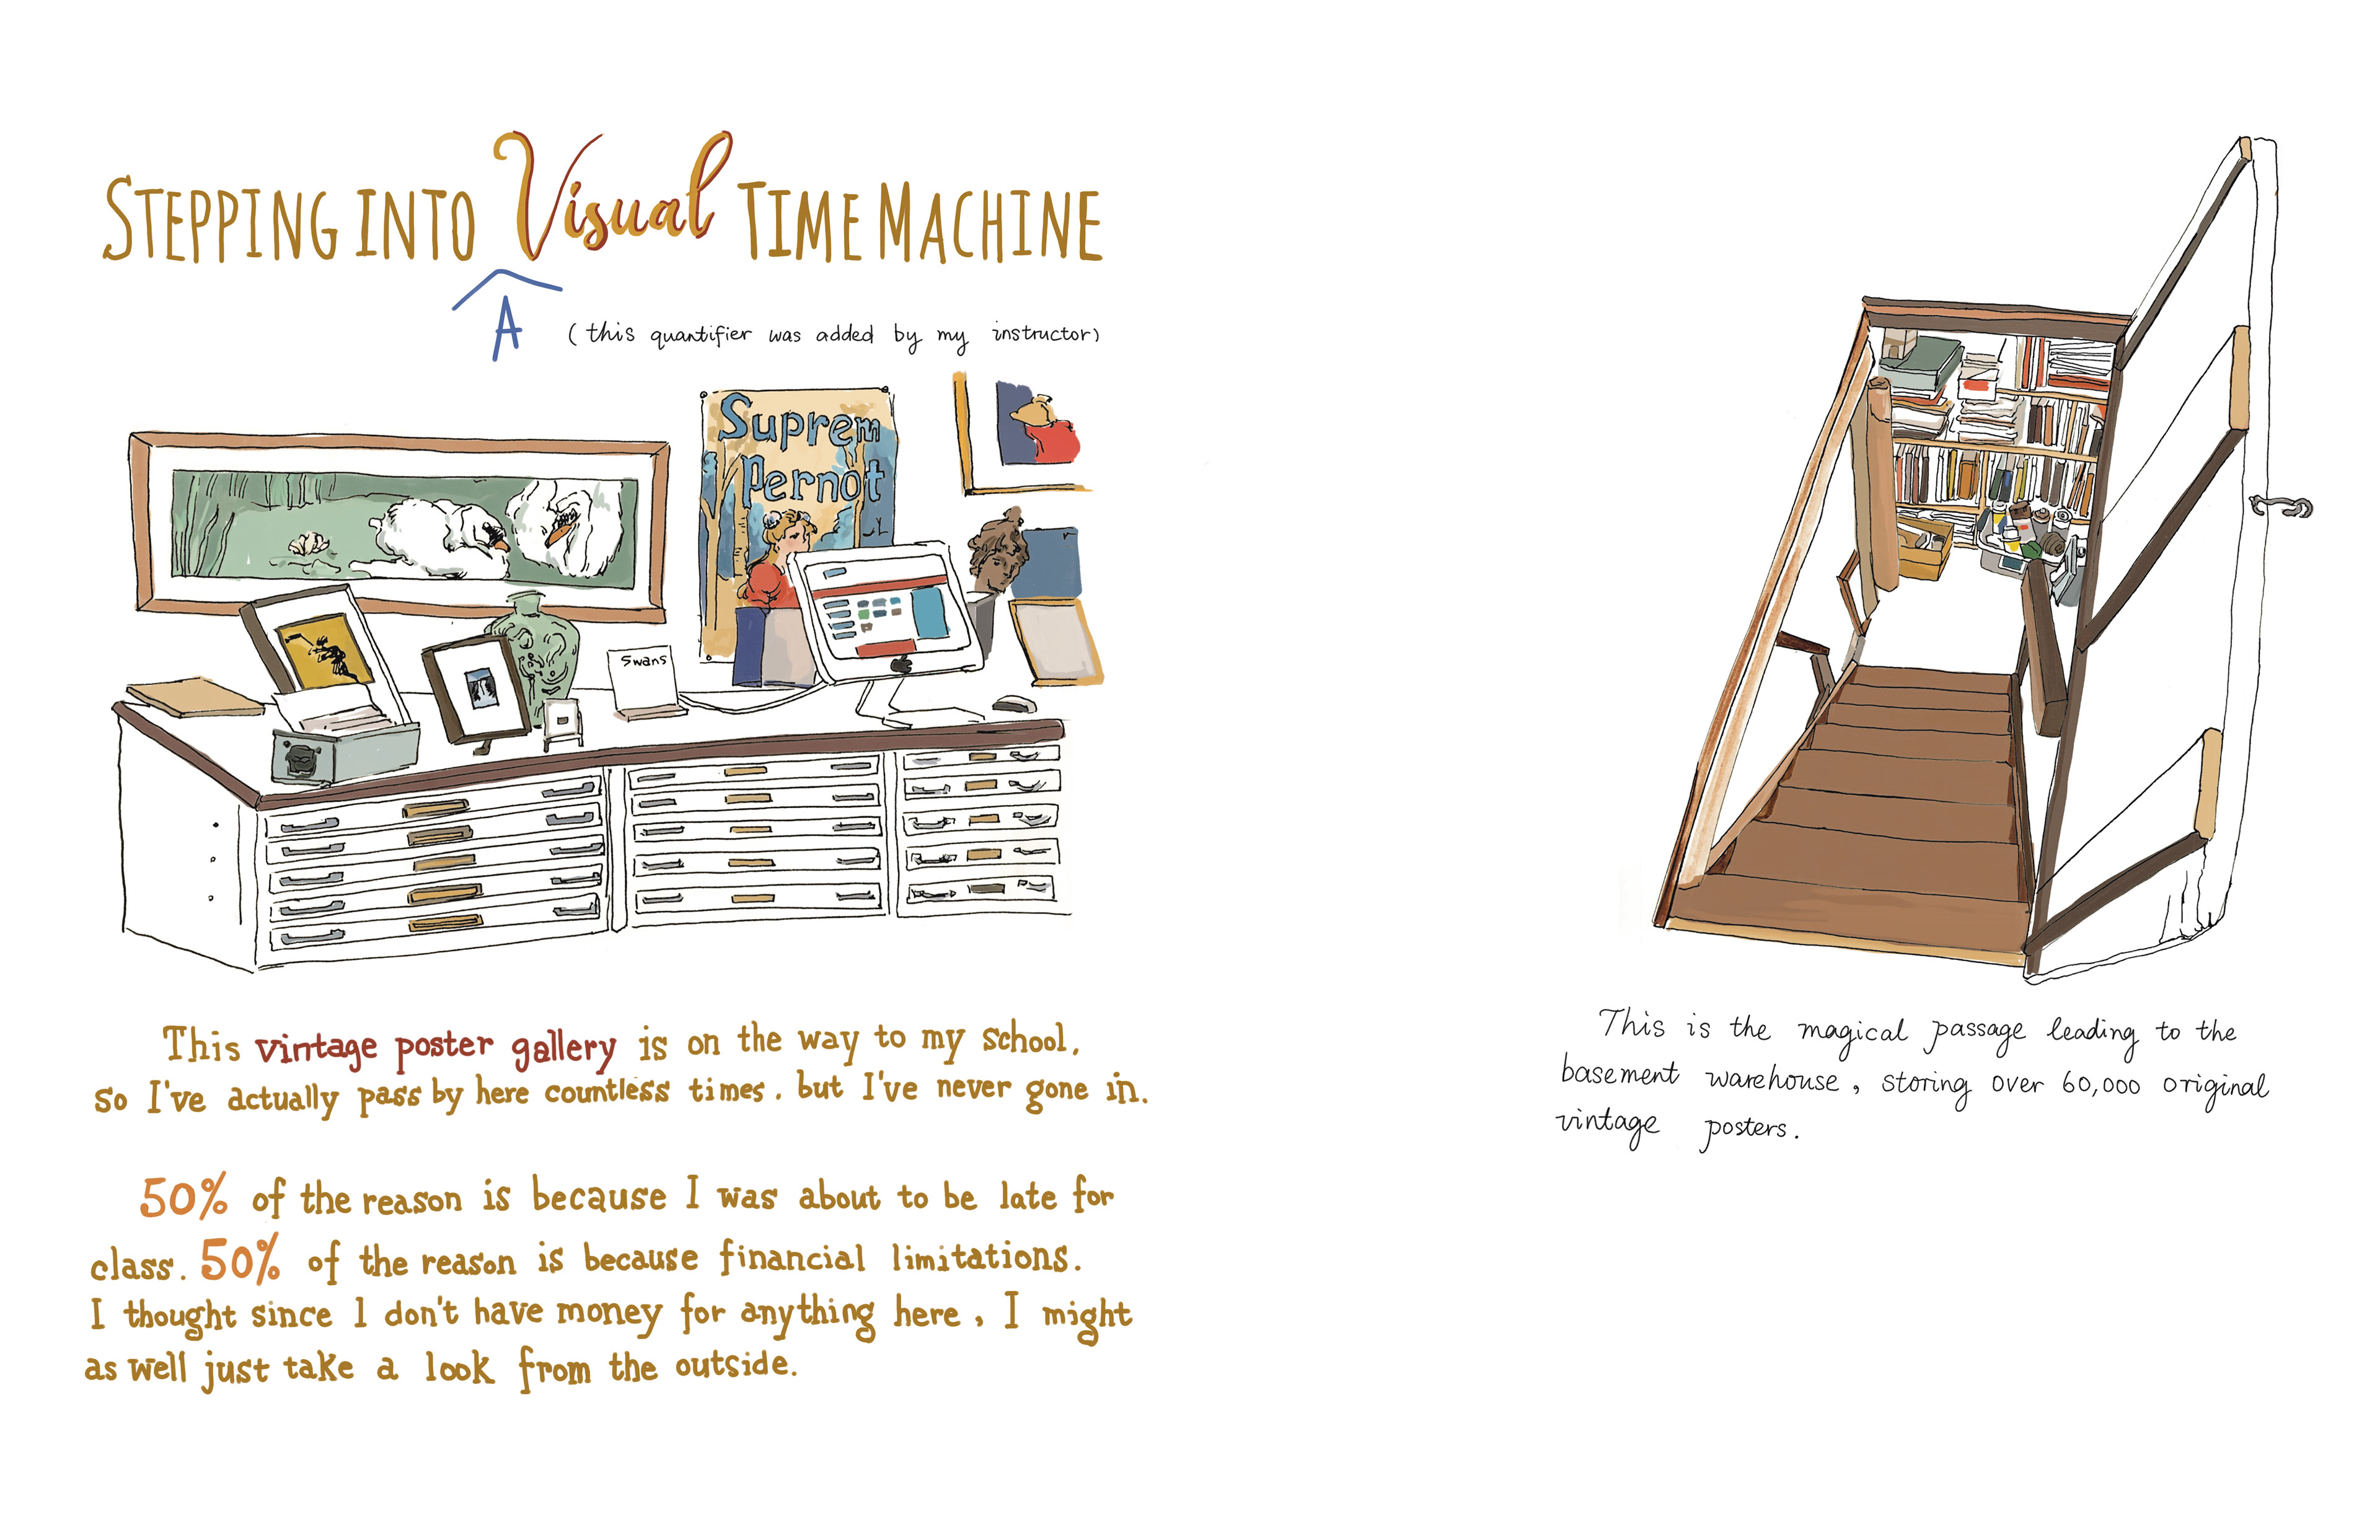 STEPPING INTO Visual TIME MACHINE
A
(this quantifier was added by my instructor)
Suprem
Pernot
Swans
This vintage poster gallery is on the way to my school,
so I've actually pass by here countless times. but I've never gone in.
50% of the reason is because I was about to be late for
class. 50% of the reason is because financial limitations.
I thought since I don't have money for anything here, I might
as well just take a look from the outside.
This is the magical passage leading to the
basement warehouse, storing over 60,000 original
vintage posters.